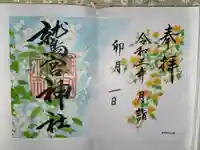 奉拝
令和三年 月詣
卯月 一日
鷲宮神社